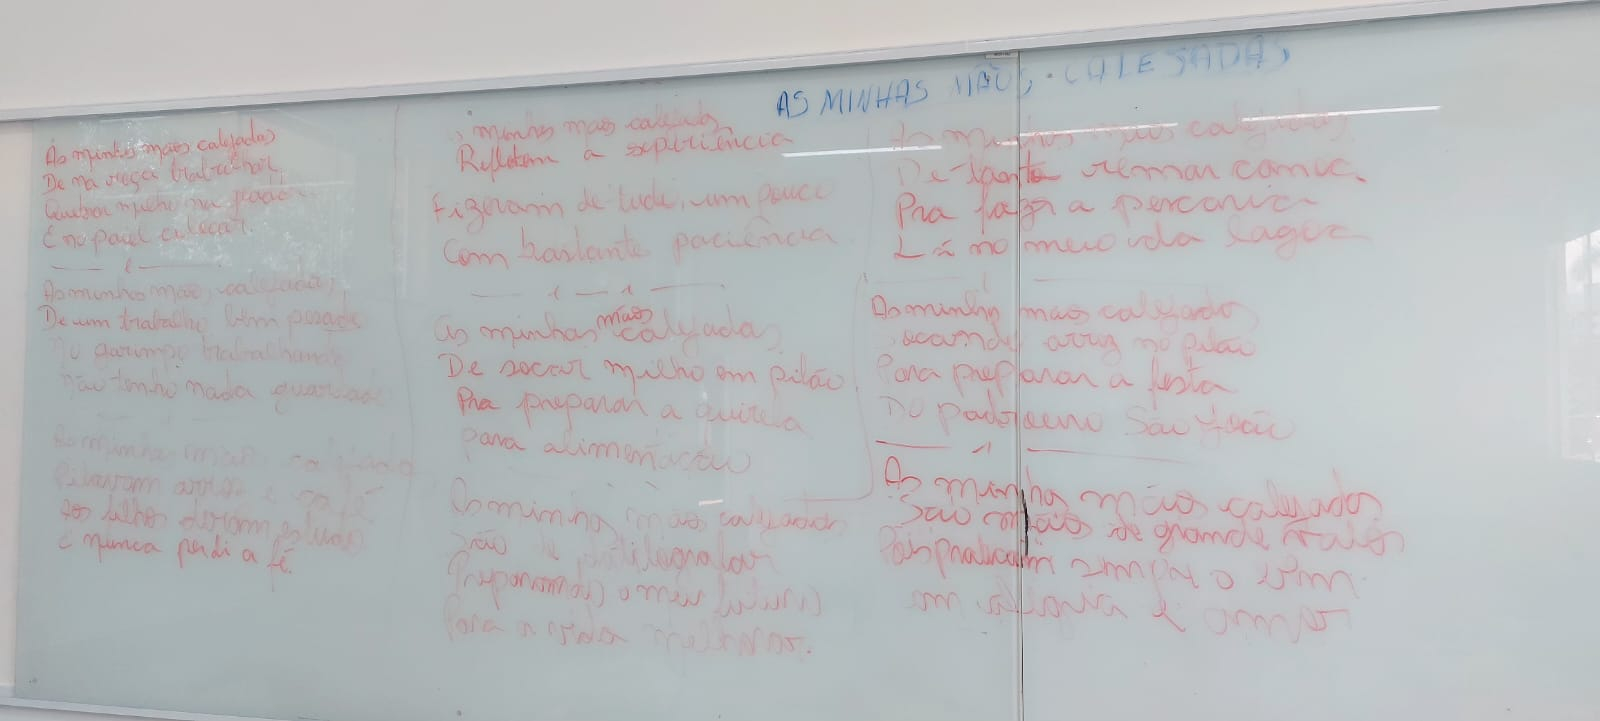 AS MINHAS MÃOS CALEJADAS
As minhas mãos calejadas
De na roça trabalhar,
Quebrar milho na
E no paiol colocar.
As minhas mãos calejadas,
De um trabalho bem pesado
No garimpo trabalhando
não tenho nada guardado
As minhas mãos calejadas
Pilavam arroz e café
Aos filhos deram estudo
E nunca perdi a fé.
minhas mãos calejadas
Refletem a experiência
Fizeram de tudo, um pouco
Com bastante paciência
As minhas mãos calejadas
De socar milho em pilão
Pra preparar a quirela
para alimentação
As minhas mãos calejadas
São de
Preparando o meu futuro
Para a vida melhorar.
As minhas mãos calejadas
De tanto remar canoa
Pra fazer a pescaria
Lá no meio da lagoa
As minhas mãos calejadas
socando arroz no pilão
Para preparar a festa
Do padroeiro São João
As minhas mãos calejadas
São mãos de grande valor
Pois praticam sempre o bem
em alegria e amor